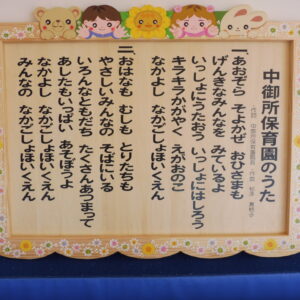 中御所保育園のうた
一、あおぞら そよかぜ おひさまも
げんきなみんなを みているよ
いっしょにうたおう いっしょにはしろう
キラキラかがやく えがおのこ
なかよし なかごしょほいくえん
二、おはなも むしも とりたちも
やさしいみんなの そばにいる
いろんなともだち たくさんあつまって
あしたもいっぱい あそぼうよ
みんなの なかごしょほいくえん
なかよし なかごしょほいくえん